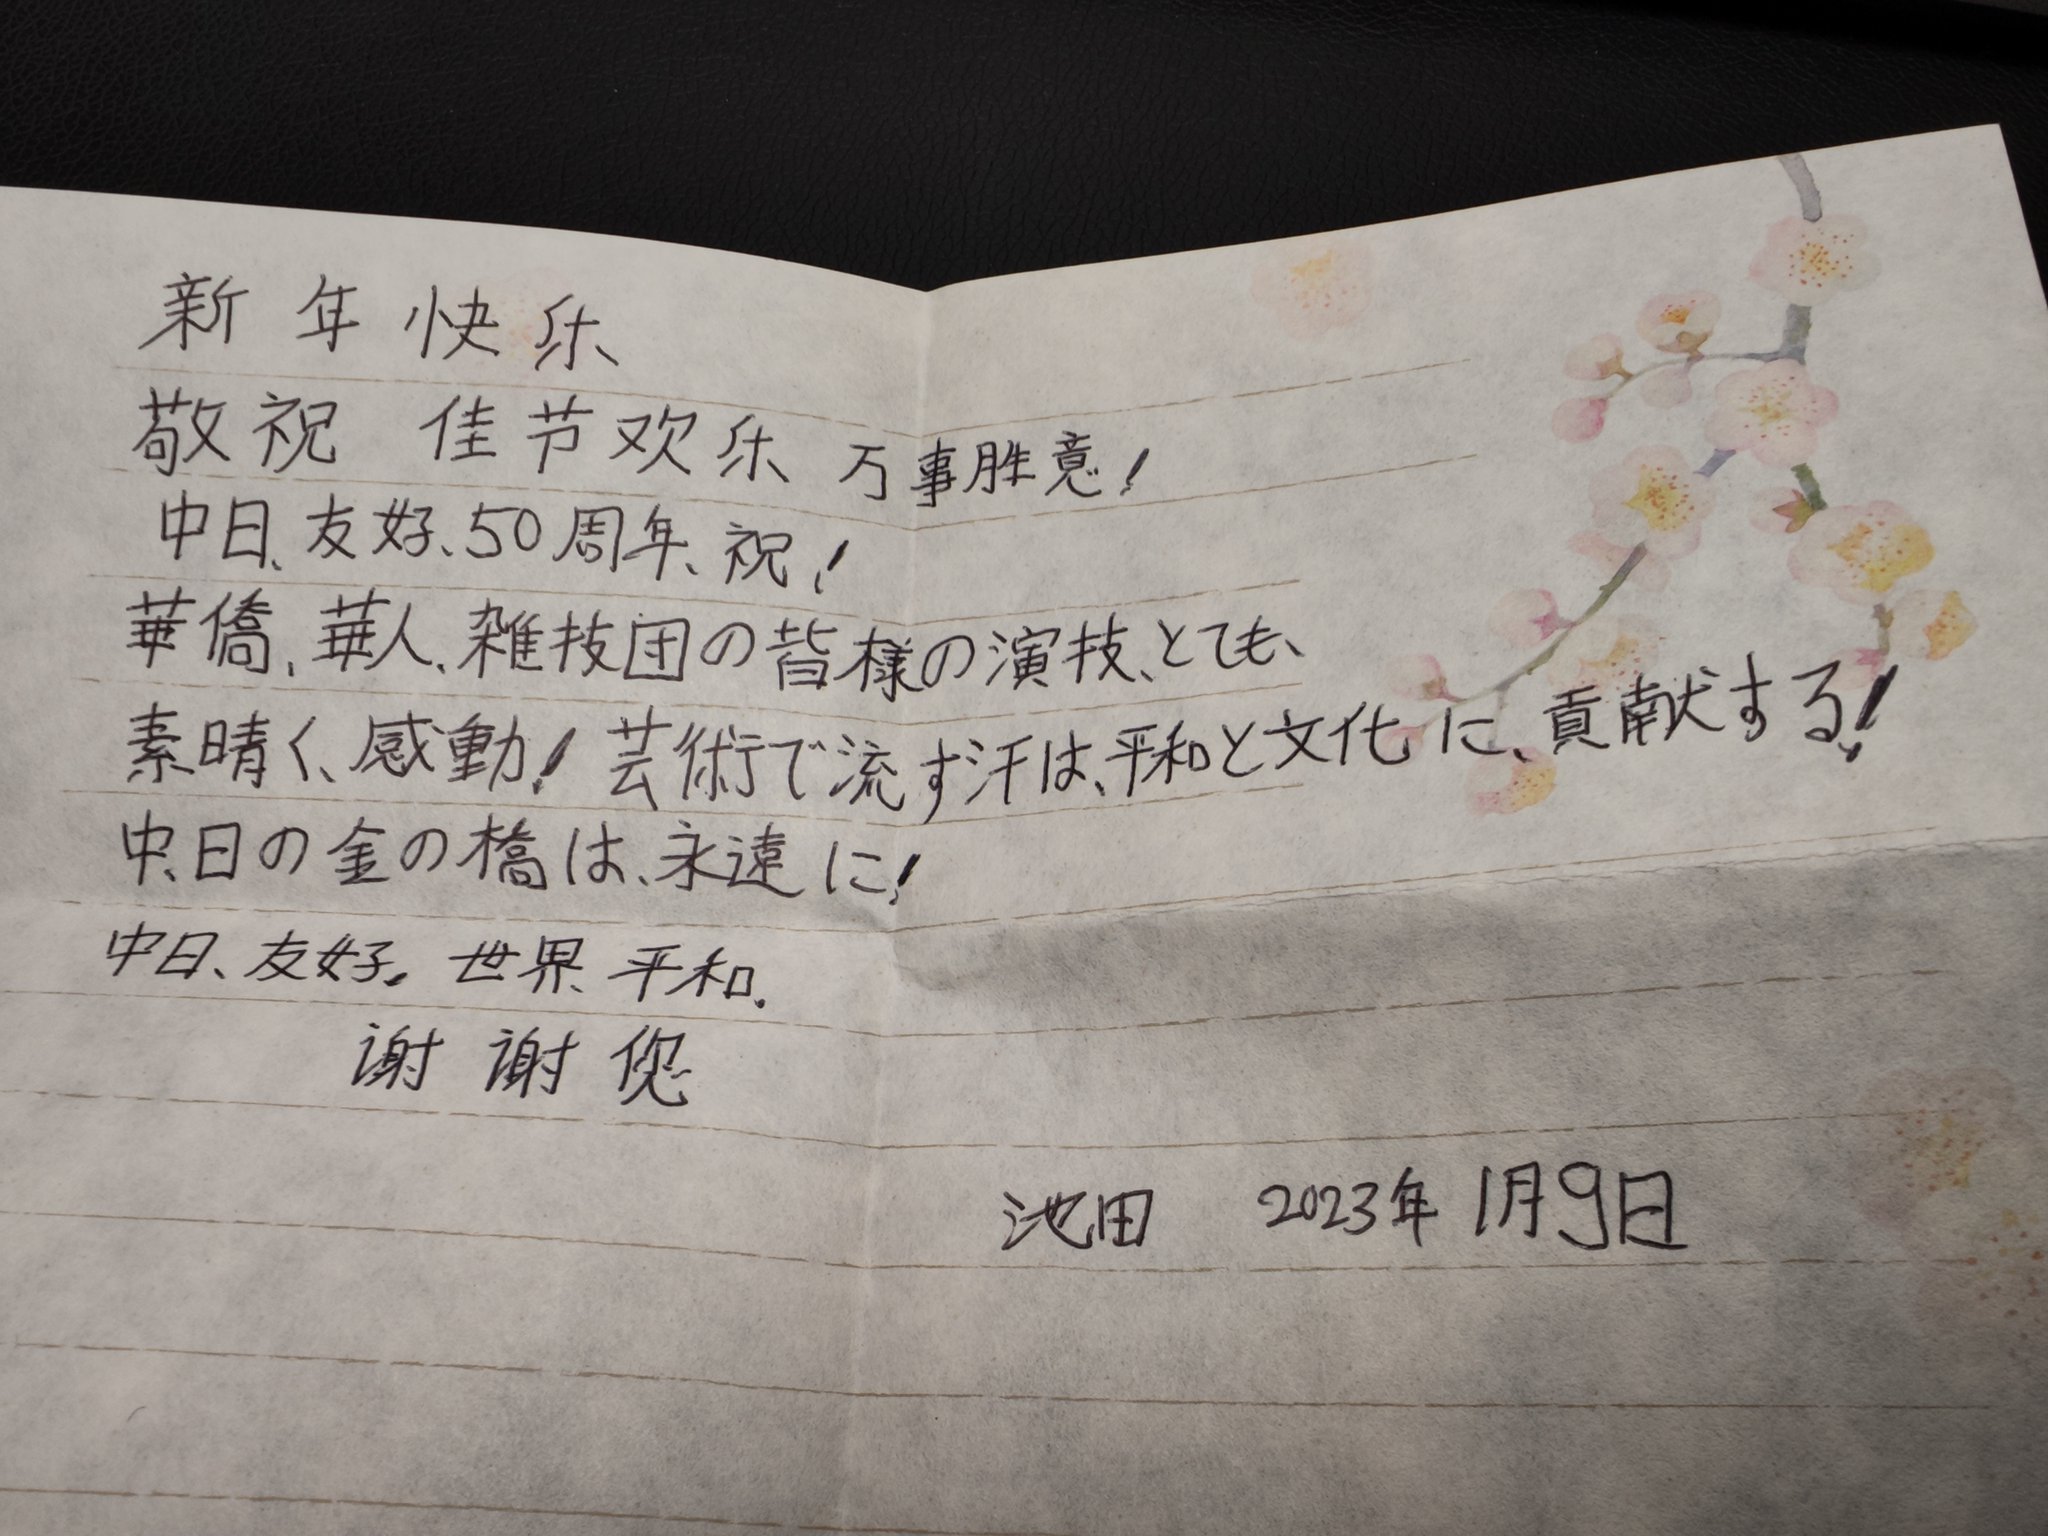 新年快乐
敬祝 佳节欢乐 万事胜意!
中日、友好、50周年、祝!
華僑、華人、雑技団の皆様の演技、とても、
素晴く、感動! 芸術で流す汗は、平和と文化に、貢献する!
中、日の金の橋は、永遠に!
中日、友好。世界、平和.
谢谢您
池田 2023年1月9日